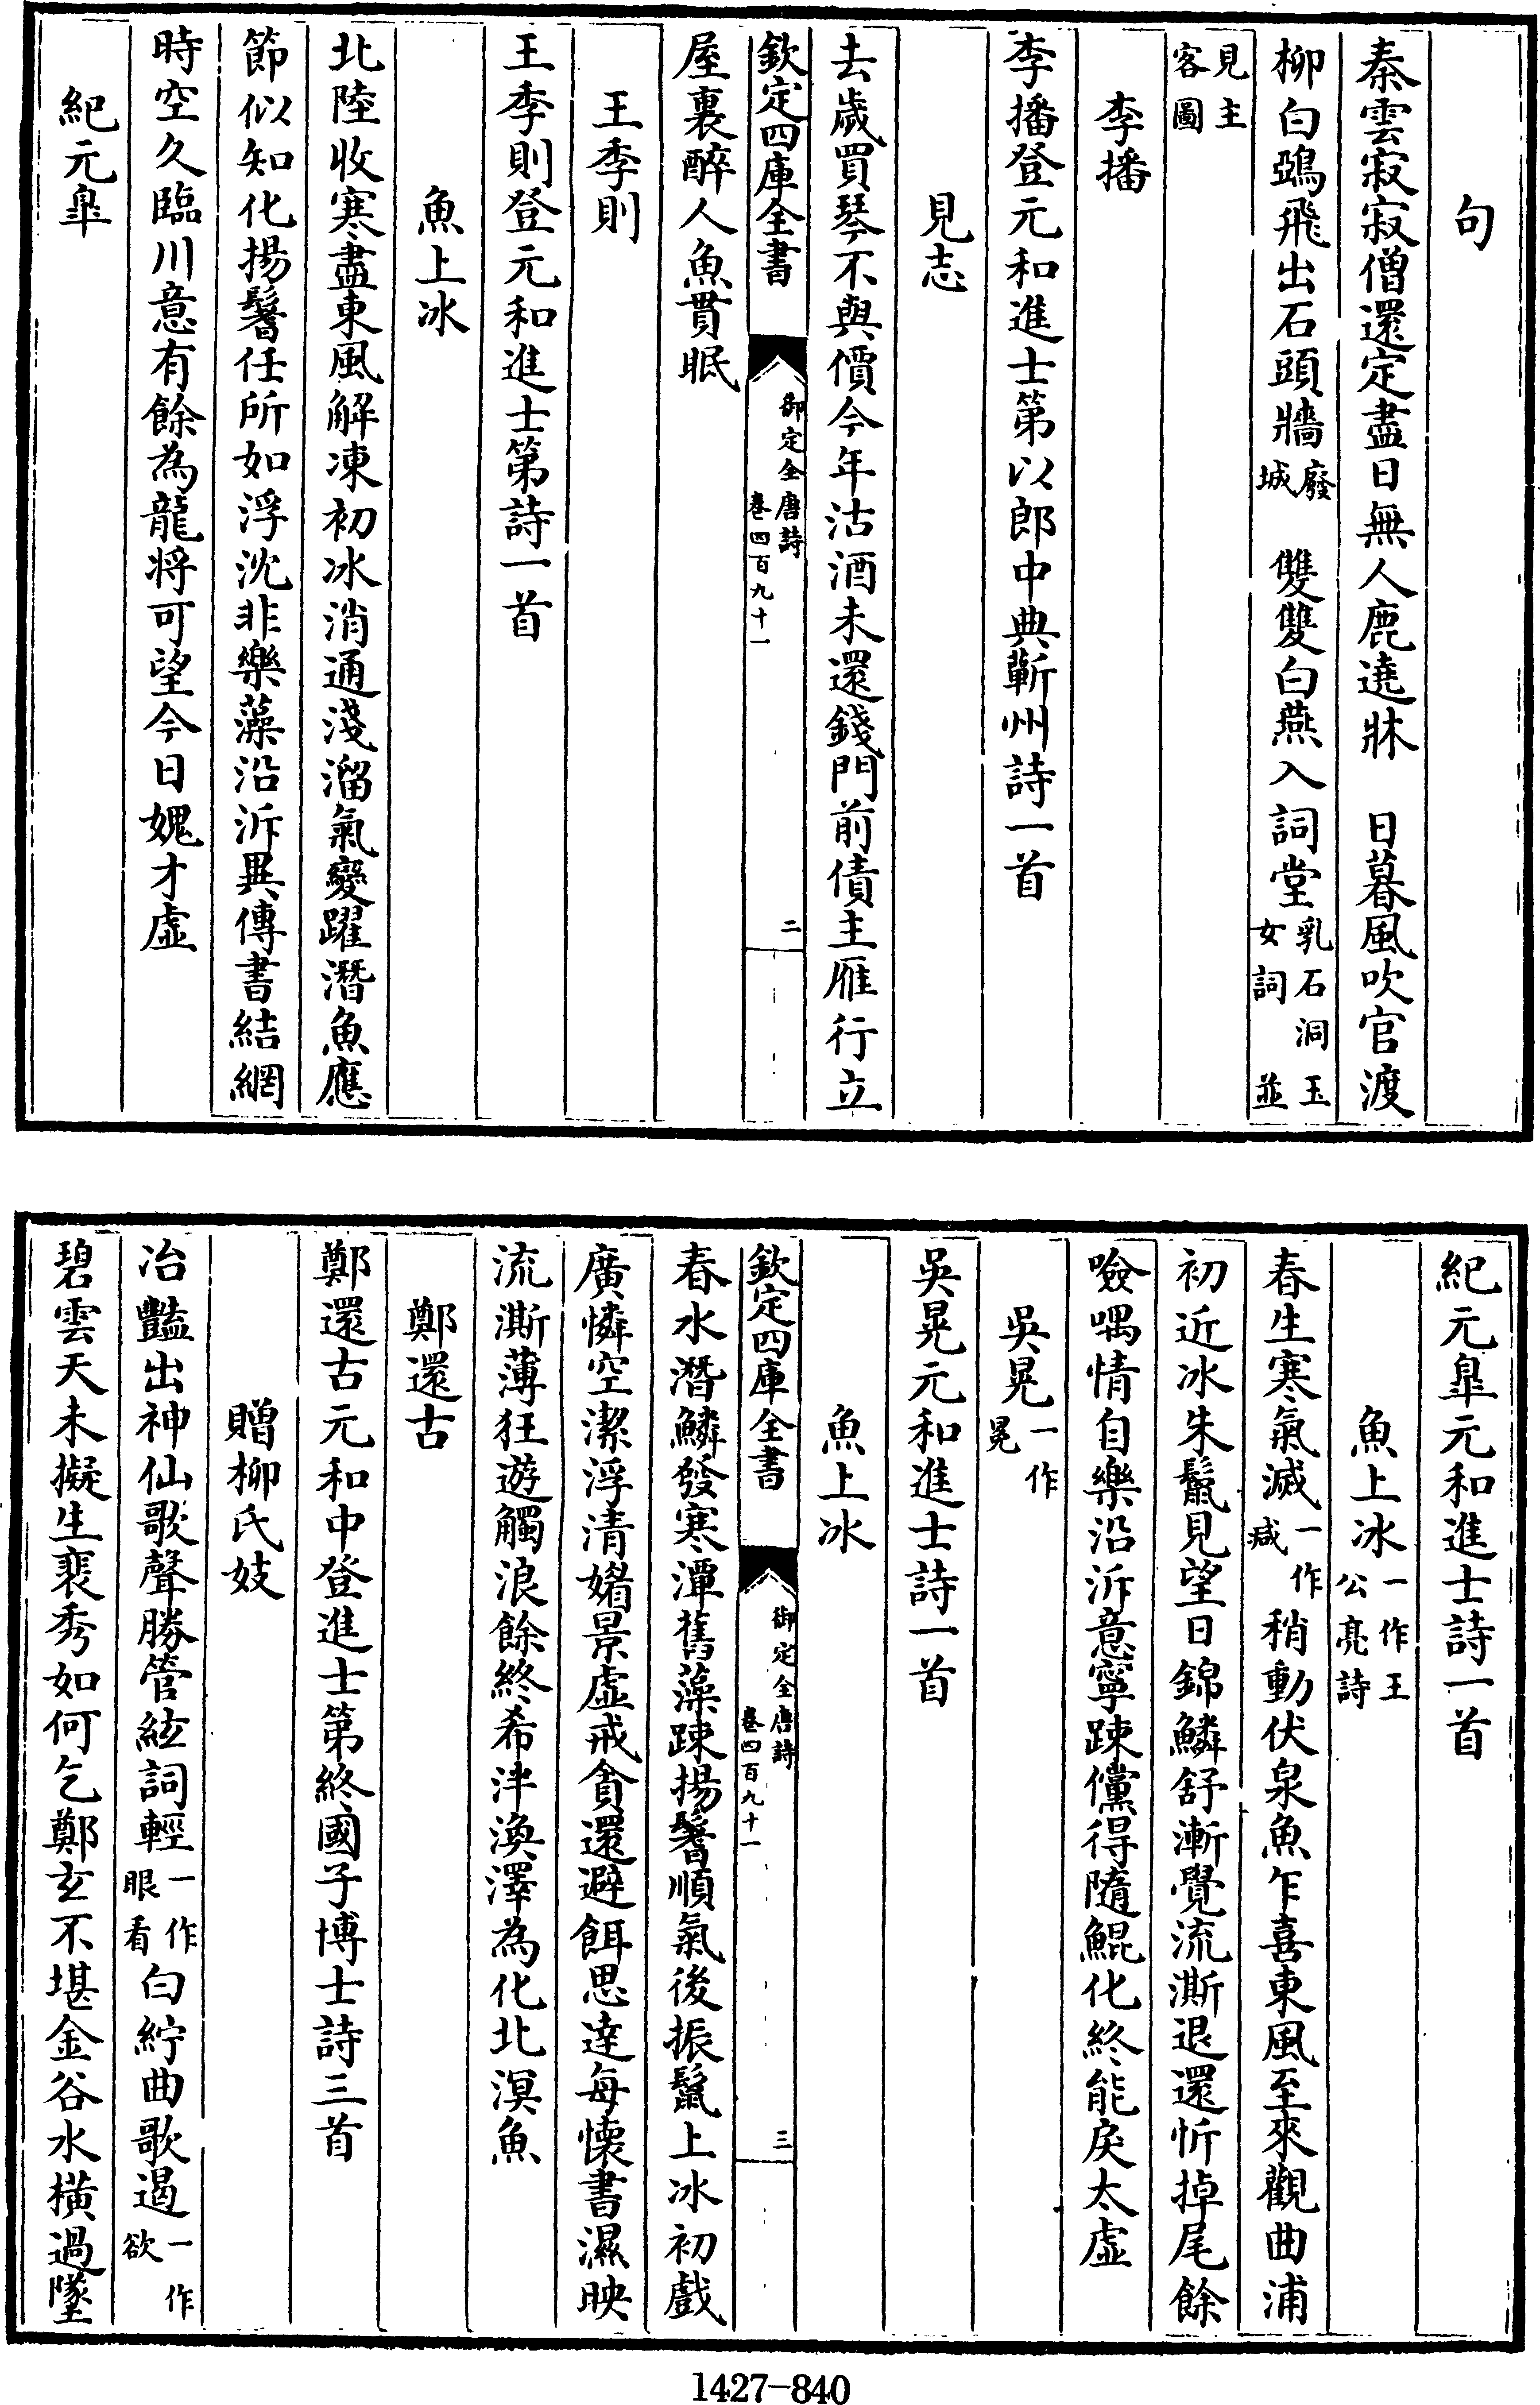 句
秦雲寂寂僧還定盡日無人鹿遶牀　日暮風吹官渡
柳白鵶飛出石頭牆廢城　雙雙白燕入詞堂乳石洞玉女詞並
見主客圖
李播
李播登元和進士第以郎中典蘄州詩一首
見志
去歲買琴不與價今年沽酒未還錢門前債主雁行立
欽定四庫全書　御定全唐詩卷四百九十一　二
屋裏醉人魚貫眠
王季則
王季則登元和進士第詩一首
魚上冰
北陸收寒盡東風解凍初冰消通淺溜氣變躍潛魚應
節似知化揚鬐任所如浮沈非樂藻沿泝異傳書結網
時空久臨川意有餘為龍將可望今日媿才虛
紀元臯
紀元臯元和進士詩一首
魚上冰一作王公亮詩
春生寒氣滅一作減稍動伏泉魚乍喜東風至來觀曲浦
初近冰朱鬛見望日錦鱗舒漸覺流澌退還忻掉尾餘
噞喁情自樂沿泝意寧踈儻得隨鯤化終能戾太虛
吳晃一作冕
吳晃元和進士詩一首
魚上冰
欽定四庫全書　御定全唐詩卷四百九十一　三
春水潛鱗發寒潭舊藻踈揚鬐順氣後振鬛上冰初戲
廣憐空潔浮清媚景虛戒貪還避餌思達每懷書濕映
流澌薄狂遊觸浪餘終希泮渙澤為化北溟魚
鄭還古
鄭還古元和中登進士第終國子博士詩三首
贈柳氏妓
冶豔出神仙歌聲勝管絃詞輕一作眼看白紵曲歌遏一作欲
碧雲天未擬生裴秀如何乞鄭玄不堪金谷水橫過墜
1427-840